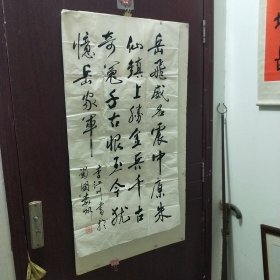 岳飛威名震中原朱
仙鎮上勝金兵千古
奇冤千古恨至今猶
憶岳家軍
書於